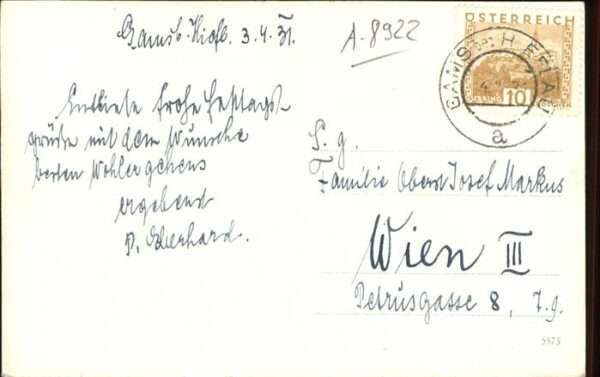 Gamsb. Kirfl. 3.4.31.
A-8922
ÖSTERREICH
10
a
Entbiete frohe Festtags-
grüße mit dem Wunsche
besten Wohlergehens
ergebend
P. Eberhard.
S. g.
Familie Oberst Josef Markus
Wien III
Petrusgasse 8, 7.g.
5575